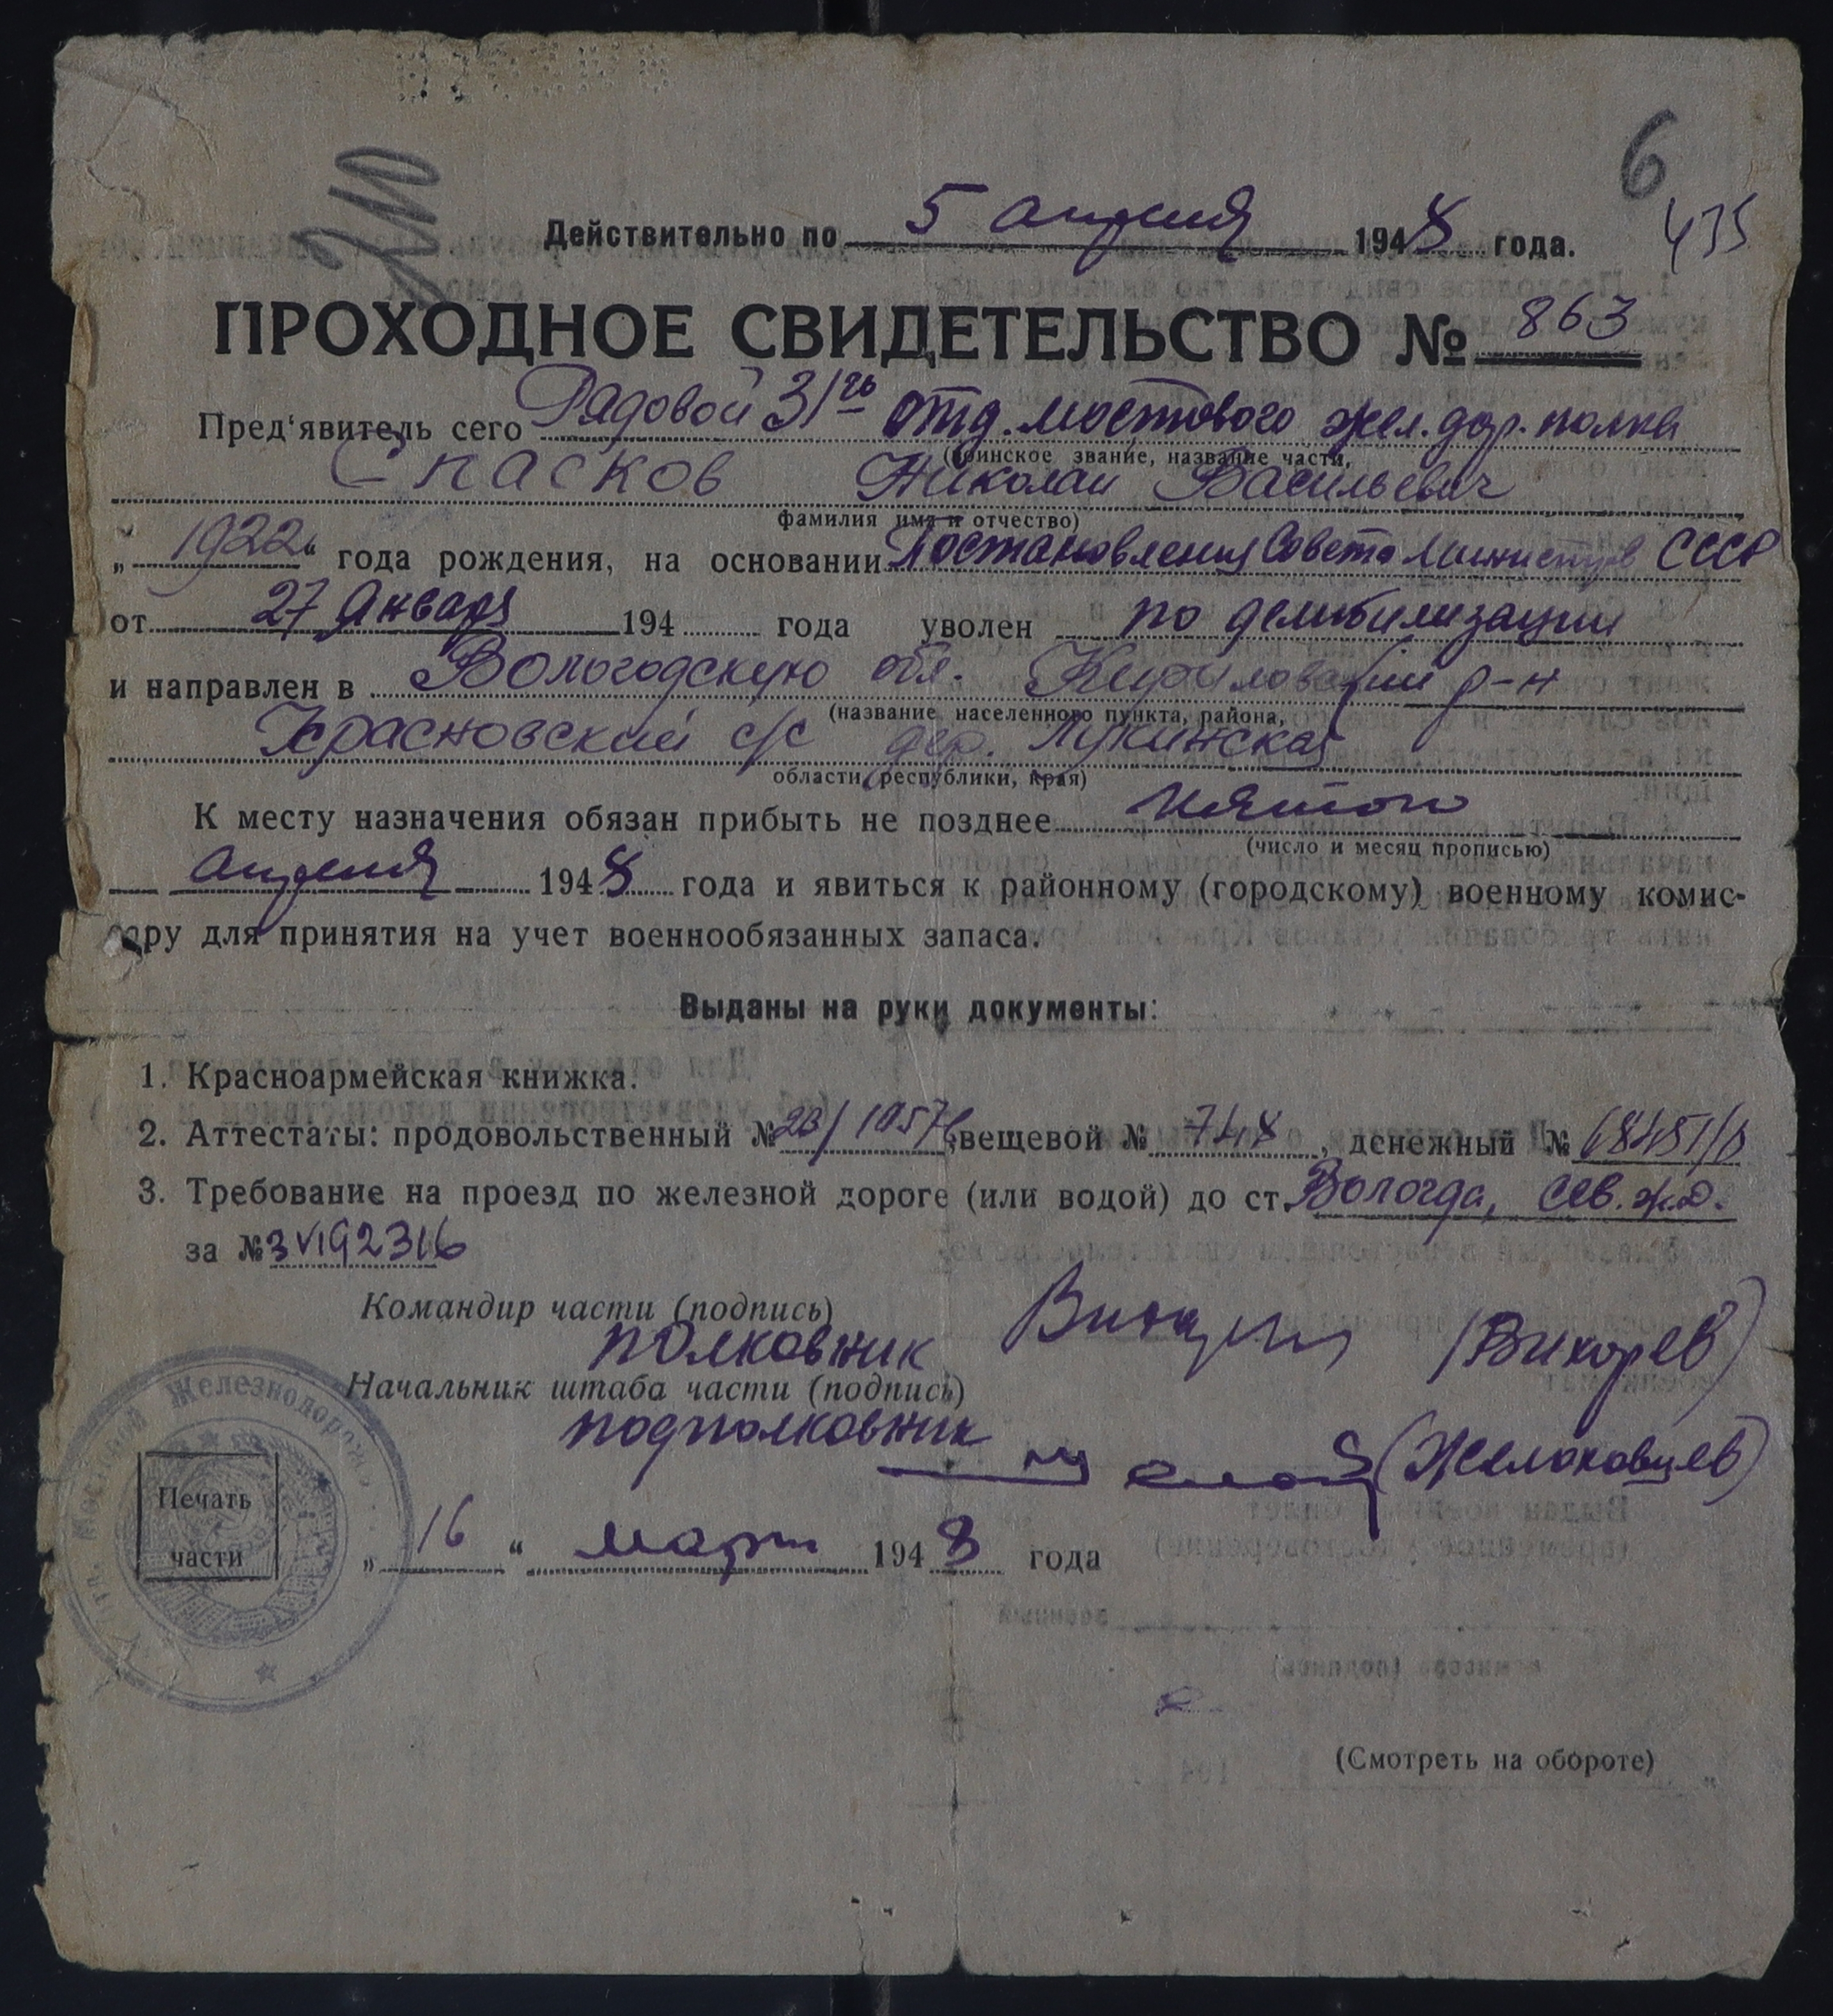 6
Действительно по 5 апреля 1948 года.
435
ПРОХОДНОЕ СВИДЕТЕЛЬСТВО № 863
Пред'явитель сего Рядовой 31го отд. мостового жел. дор. полка
(воинское звание, название части,
Спасков Николай Васильевич
фамилия имя и отчество)
„ 1922 “ года рождения, на основании Постановления Совета Министров СССР
от 27 Января 194 года уволен по демобилизации
и направлен в Вологодскую обл. Кирилловский р-н
(название населенного пункта, района,
Красновский с/с дер. Лукинская
области, республики, края)
К месту назначения обязан прибыть не позднее пятого
(число и месяц прописью)
апреля 1948 года и явиться к районному (городскому) военному комис-
сару для принятия на учет военнообязанных запаса.
Выданы на руки документы:
1. Красноармейская книжка.
2. Аттестаты: продовольственный № вещевой № 748, денежный №
3. Требование на проезд по железной дороге (или водой) до ст. Вологда, Сев. ж.д.
за № 3VI92316
Командир части (подпись)
полковник (Вихорев)
Начальник штаба части (подпись)
подполковник (Желоковцев)
Мостовой Железнодорож
Печать
части
„ 16 “ март 1948 года
(Смотреть на обороте)